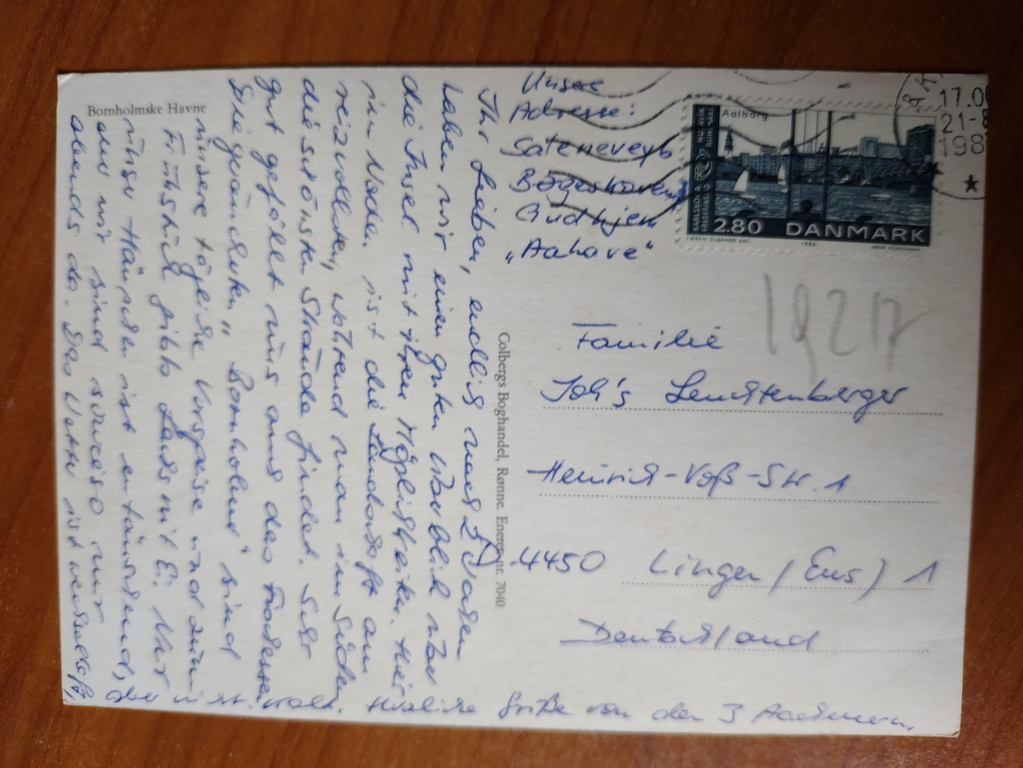 Bornholmske Havne
Ihr Lieben, endlich nach 2 Tagen
haben wir einen guten Überblick über
die Insel mit ihren Möglichkeiten. Hier
im Norden ist die Landschaft am
reizvollsten, während man im Süden
die schönsten Strände findet. Sehr
gut gefällt uns auch das Essen.
Die geräucherten " Bornholmer" sind
unsere tägliche Vorspeise und zum
Frühstück gibts Lachs mit Ei. Nur
unser Häuschen ist enttäuschend,
aber wir sind sowieso nur
abends da. Das Wetter ist wechselhaft,
aber nicht kalt. Herzliche Grüße von den 3 Aachenern.
Colbergs Boghandel, Rønne. Eneret nr. 7040
Unsere
Adresse:
Gudhjem
„Aahave"
Aalborg
2.80 DANMARK
17.00
21-8
198
19217
Familie
Joh's Leuchtenberger
Heinrich-Voß-Str. 1
D. 4450 Lingen (Ems) 1
Deutschland